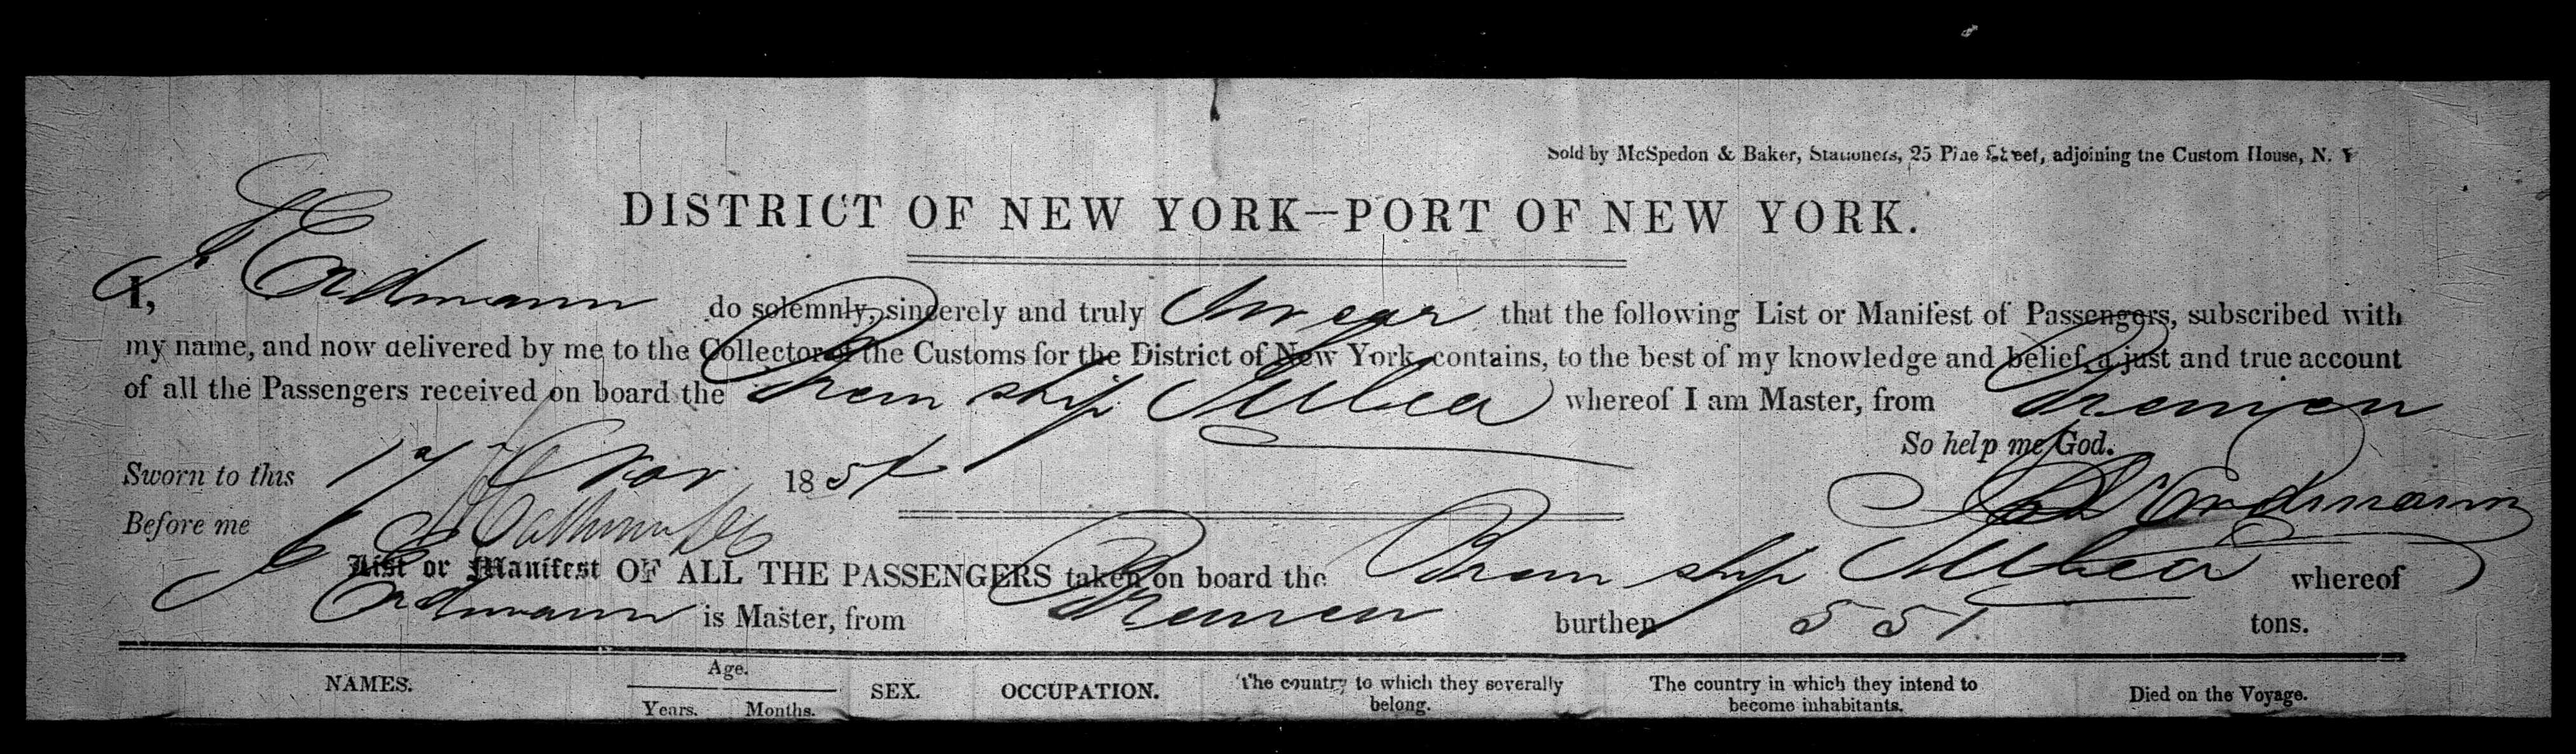 Sold by McSpedon & Baker, Stationers, 25 Pine Street, adjoining the Custom House, N. Y
DISTRICT OF NEW YORK—PORT OF NEW YORK.
I, J Erdmann do solemnly, sincerely and truly Swear that the following List or Manifest of Passengers, subscribed with
my name, and now delivered by me to the Collector of the Customs for the District of New York, contains, to the best of my knowledge and belief, a just and true account
of all the Passengers received on board the Brem ship whereof I am Master, from Bremen
So help me God.
Sworn to this 1 Nov 185
Before me Erdmann
List or Manifest OF ALL THE PASSENGERS taken on board the Brem ship whereof
J Erdmann is Master, from Bremen burthen 551 tons.
NAMES. Age. Years. Months. SEX. OCCUPATION. The country to which they severally belong. The country in which they intend to become inhabitants. Died on the Voyage.